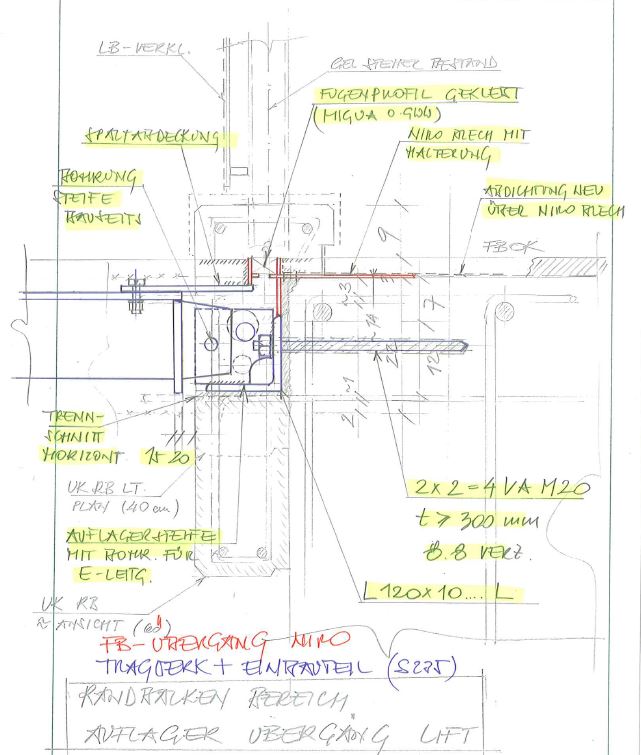 LB-VERKL.
GELSTEHER BESTAND
FUGENPROFIL GEKLEBT
(MIGUA O. GLW)
SPALTABDECKUNG
NIRO BLECH MIT
HALTERUNG
BOHRUNG
STEIFE
BAUSEITS
ABDICHTUNG NEU
ÜBER NIRO BLECH
FBOK
9
~3
3
14
7
22
12
~1
2
TRENN-
SCHNITT
HORIZONT
15 20
UK RB LT.
PLAN (40 cm)
2x2 = 4 VA M20
t ≥ 300 mm
8.8 VERZ.
AUFLAGERSTEIFE
MIT BOHR. FÜR
E-LEITG.
L 120x10.... L
UK RB
≈ ANSICHT
FB-ÜBERGANG NIRO
TRAGWERK + EINBAUTEIL (S235)
RANDBALKEN BEREICH
AUFLAGER ÜBERGANG LIFT